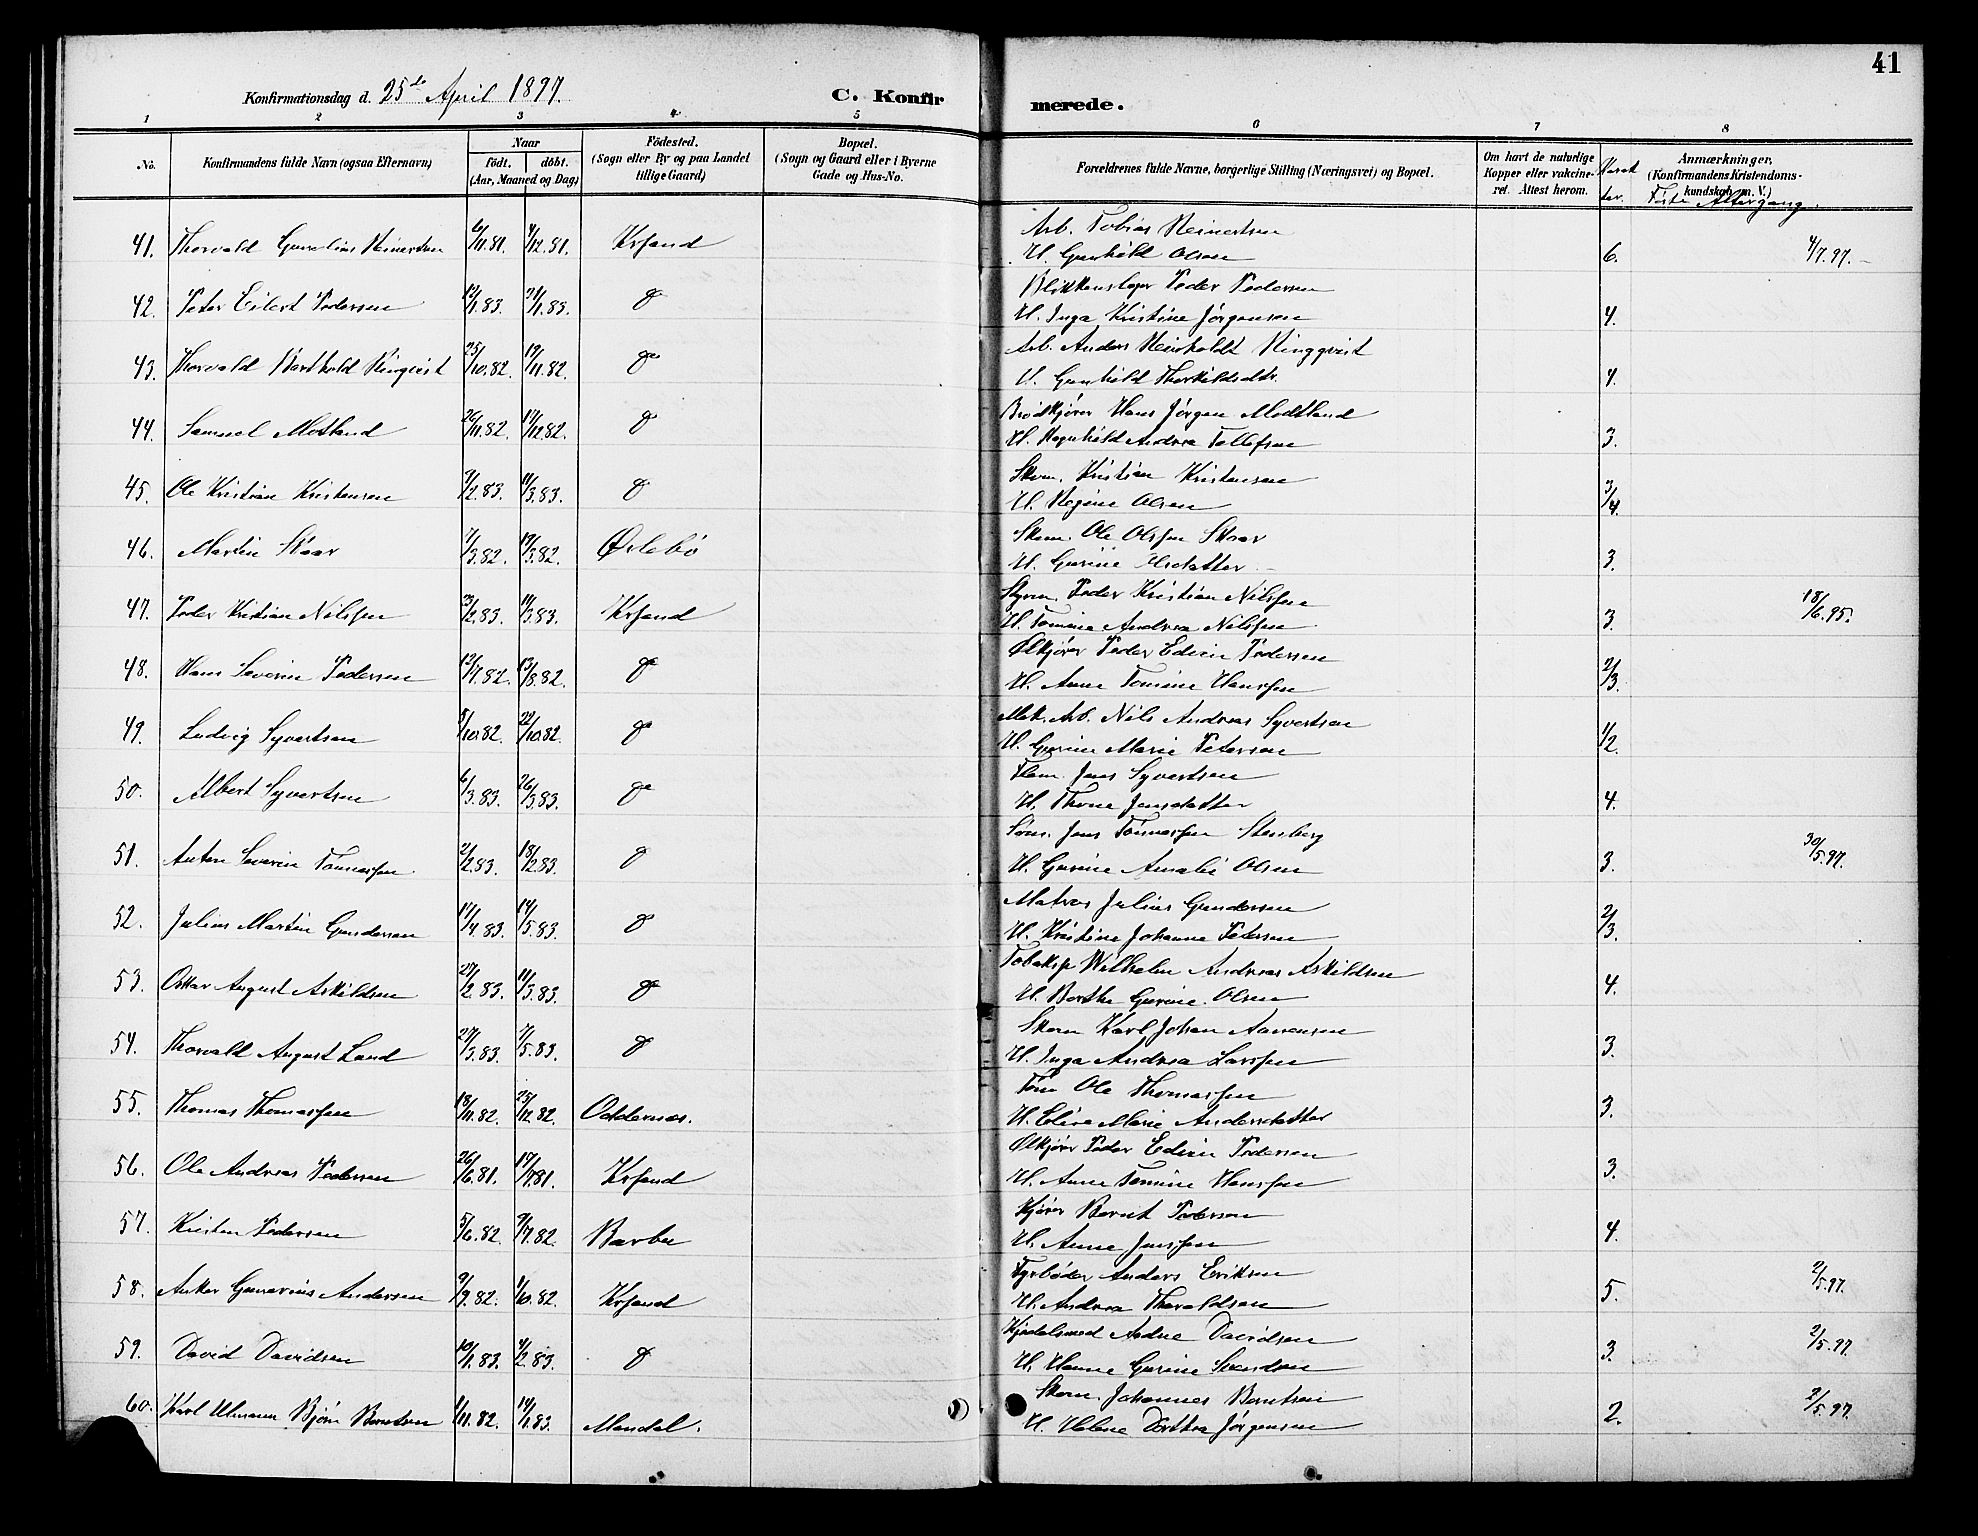 41
Konfirmationsdag d. 25de April 1897. C. Konfirmerede.
1 2 3 4 5 6 7 8
No. Konfirmandens fulde Navn (ogsaa Efternavn) Naar født, døbt. (Aar, Maaned og Dag) Fødested. (Sogn eller By og paa Landet tillige Gaard) Bopæl. (Sogn og Gaard eller i Byerne Gade og Hus-No. Forældrenes fulde Navne, borgerlige Stilling (Næringsvei) og Bopæl. Om havt de naturlige Kopper eller vakcineret. Attest herom. Karakter. Anmærkninger, (Konfirmandens Kristendomskundskab m. V.) Første Altergang.
41. Thorvald Gunelius Reinertsen 6/11.81. 4/12.81. Krsand Arb. Tobias Reinertsen
H. Gunhild Olsen 6. 4/7.97.
42. Peter Eilert Pedersen 12/1.83. 31/1.83. d° Blikkenslager Peder Pedersen
H. Inga Kristine Jörgensen 4.
43. Thorvald Berthold Ringqvist 25/10.82. 19/11.82. d° Arb. Anders Reinholdt Ringqvist
H. Gunhild Therkildsdtr. 4.
44. Samuel Motland 26/11.82. 17/12.82. d° Brödkjörer Hans Jörgen Modtland
H. Ragnhild Andrea Tellefsen 3.
45. Ole Kristian Kristensen 9/2.83. 11/3.83. d° Skom. Kristian Kristensen
H. Regine Olsen 3/4.
46. Martin Skaar 7/3.82. 19/3.82. Øslebö Skom. Ole Olsen Skaar
H. Gurine 3.
47. Peder Kristian Nilssen 23/2.83. 11/3.83. Krsand Styrm. Peder Kristian Nilssen
H. Tomine Andrea Nilssen 3. 18/6.95.
48. Hans Severin Pedersen 12/7.82. 13/8.82. d° Ølkjörer Peder Edvin Pedersen
H. Anne Tomine Hanssen 2/3.
49. Ludvig Syvertsen 8/10.82. 22/10.82. d° Mek. Arb. Nils Andreas Syvertsen
H. Gurine Marie Petersen 1/2.
50. Albert Syvertsen 6/3.83. 26/3.83. d° Töm. Jens Syvertsen
H. Thone Jensdatter 4.
51. Anton Severin Tönnessen 2/2.83. 18/2.83. d° Söm. Jens Tönnessen Stenberg
H. Gurine Amalie Olsen 3. 30/5.97.
52. Julius Martin Gundersen 17/4.83. 14/5.83. d° Matros Julius Gundersen
H. Kristine Johanne Petersen 2/3.
53. Oskar August Askildsen 27/2.83. 11/3.83. d° Tobaksp Wilhelm Andreas Askildsen
H. Berthe Gurine Olsen 4.
54. Thorvald August Lund 27/3.83. 7/5.83. d° Skom Karl Johan Aanensen
H. Inga Andrea Larssen 3.
55. Thomas Thomassen 18/11.82. 25/12.82. Oddernæs. Töm Ole Thomassen
H. Elise Marie Andersdatter 3.
56. Ole Andreas Pedersen 26/6.81. 17/7.81. Krsand Ølkjörer Peder Edvin Pedersen
H. Anne Tomine Hanssen 3.
57. Kristen Pedersen 5/6.82. 9/7.82. Barbu Kjörer Bernt Pedersen
H. Anne Jenssen 4.
58. Anker Gunerius Andersen 9/9.82. 1/10.82. Krsand Fyrböder Anders Eriksen
H. Andrea Thoraldsen 5. 2/5.97.
59. David Davidsen 10/1.83. 4/2.83. d° Kjedelsmed Andre Davidsen
H. Hanne Gurine Svendsen 3. 2/5.97.
60. Karl Ulmann Björn Berntsen 1/11.82. 14/1.83. Mandal. Skom. Johannes Berntsen
H. Helene Dorthea Jörgensen 2. 2/5.97.